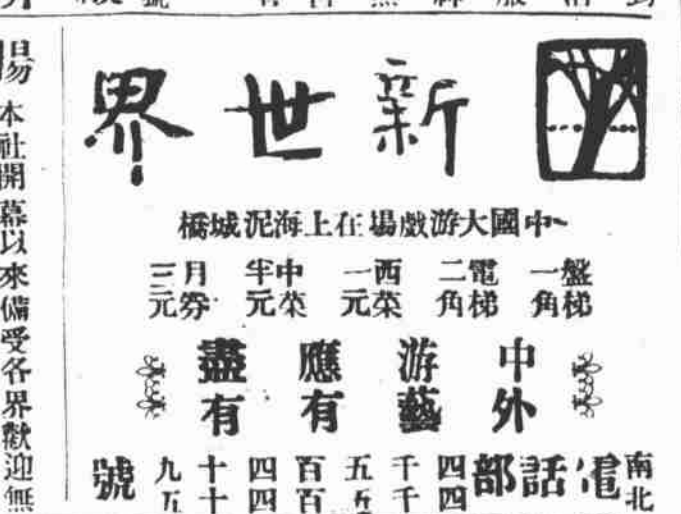 新世界
中國大游戲場在上海泥城橋
盤梯一角 電梯二角 西菜一元 中菜半元 月券三元
中外游藝應有盡有
南北電話部 四千五百四十九 四千五百四十五 號
本社開幕以來備受各界歡迎無